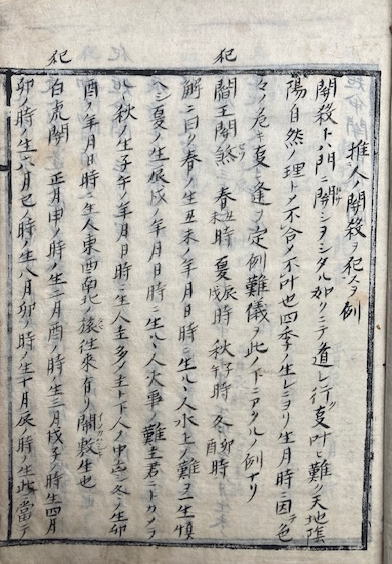 推人ノ関殺ヲ犯ス例
関殺トハ門ニ関シヲシタル如クニテ道レ行叓叶ヒ難ク天地陰
陽自然ノ理トメ不合メ不叶也四季ノ生レニヨリ生月時ニ因テ色
々ノ危キ叓ニ逢フ定例難儀ヲ此ノ下ニアタルノ例ナリ
犯 閻王関煞ニ 春丑未時 夏辰戌時 秋子午時 冬卯酉時
解ニ曰ク春ノ生丑未ノ年月日時ニ生ルヽ人水上ノ難ヲ一生慎
ヘシ夏ノ生辰戌ノ年月日時ニ生ルヽ人火事ノ難主君ニトカメラ
ル秋ノ生子午ノ年月日時ニ生人主多ノ主ト下人ノ中 冬ノ生卯
酉ノ年月日時ニ生人東西南北ノ旅往來有リ関敷生也
犯 白虎関 正月申ノ時ノ生二月酉ノ時ノ生三月戌ノ時生四月
卯ノ時ノ生六月巳ノ時ノ生八月卯ノ時ノ生十月辰時ノ生此ニ當テ